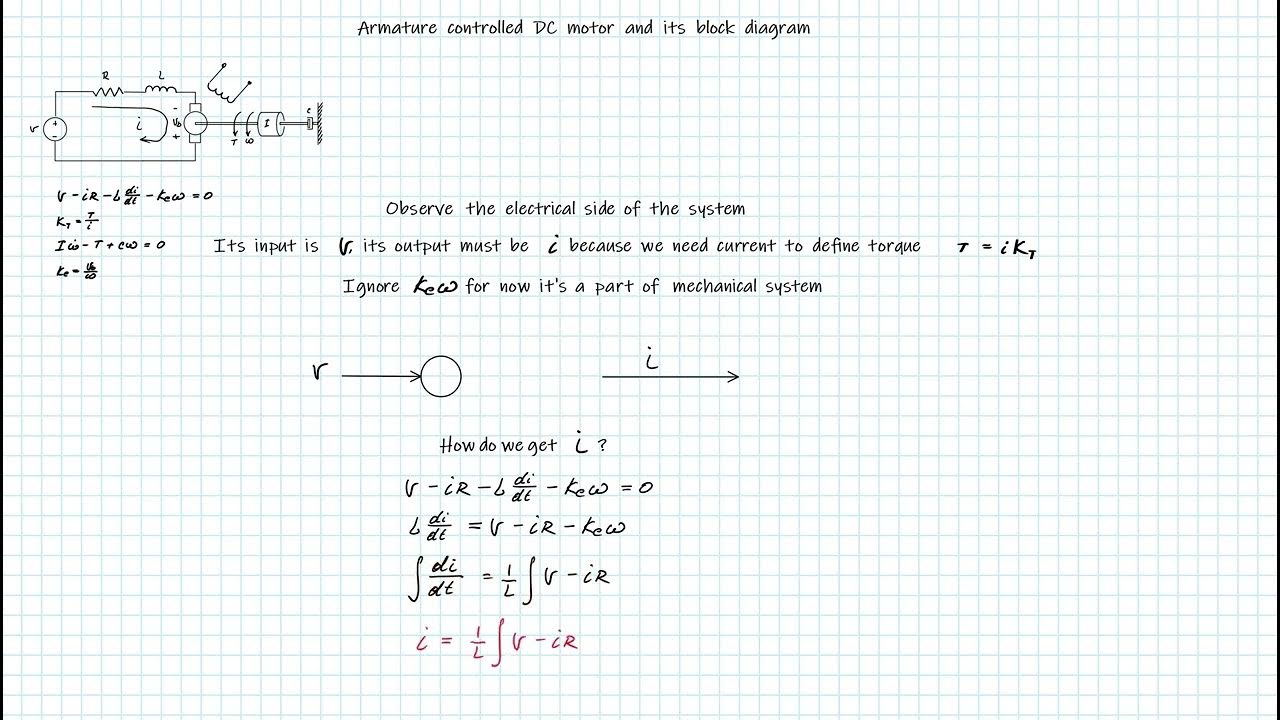 Armature controlled DC motor and its block diagram
R L
c
v + - i - Vb + I
T ω
v - iR - L di/dt - Keω = 0
KT = T/i
Iω̇ - T + cω = 0
Ke = Vb/ω
Observe the electrical side of the system
Its input is v, its output must be i because we need current to define torque T = iKT
Ignore Keω for now it's a part of mechanical system
v i
How do we get i ?
v - iR - L di/dt - Keω = 0
L di/dt = v - iR - Keω
∫ di/dt = 1/L ∫ v - iR
i = 1/L ∫ v - iR